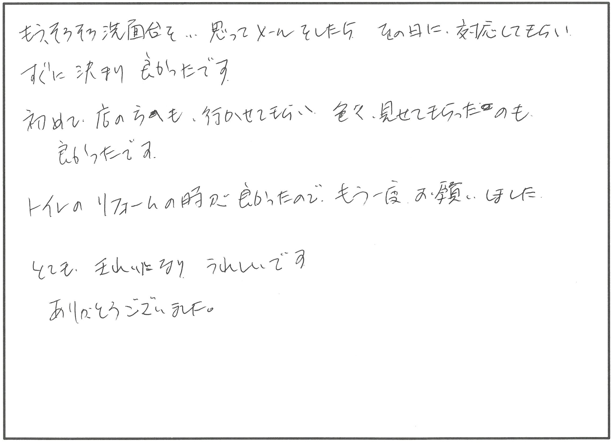 もう、そろそろ洗面台を… 思ってメールをしたら その日に、対応してもらい
すぐに 決まり 良かったです
初めて、店の方へも、行かせてもらい 色々、見せてもらったのも
良かったです
トイレの リフォームの時 良かったので、もう一度 お願いしました
とても、きれいになり うれしいです
ありがとうございました。